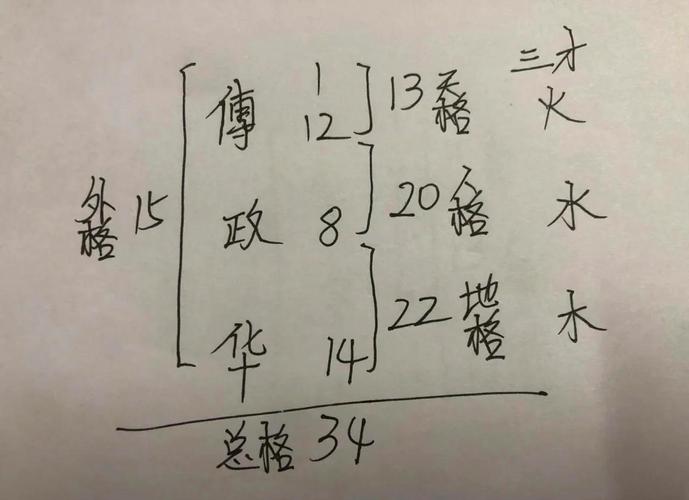 三才
1
傅 12 13 天格 火
外格 15 政 8 20 人格 水
华 14 22 地格 木
总格 34